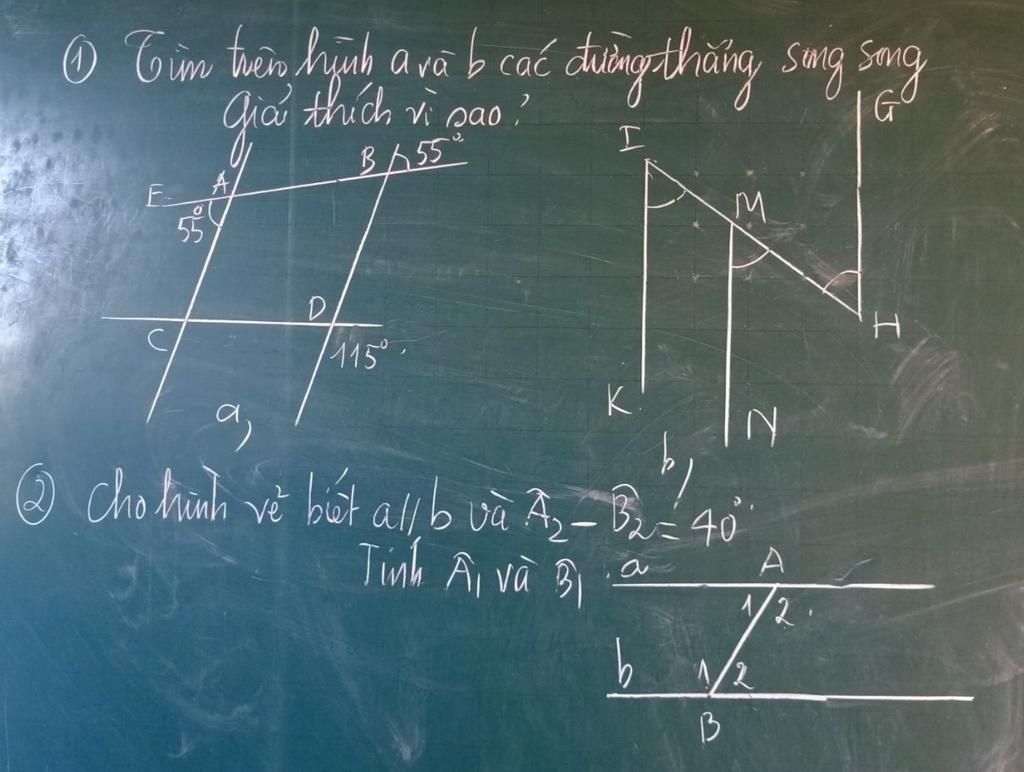 ① Tìm trên hình a và b các đường thẳng song song
Giải thích vì sao?
E A B 55°
55°
C D
115°
a,
I G
M
H
K N
b,
② Cho hình vẽ biết a//b và Â₂ - B̂₂ = 40°
Tính Â₁ và B̂₁
a A
1 2
b 1 2
B